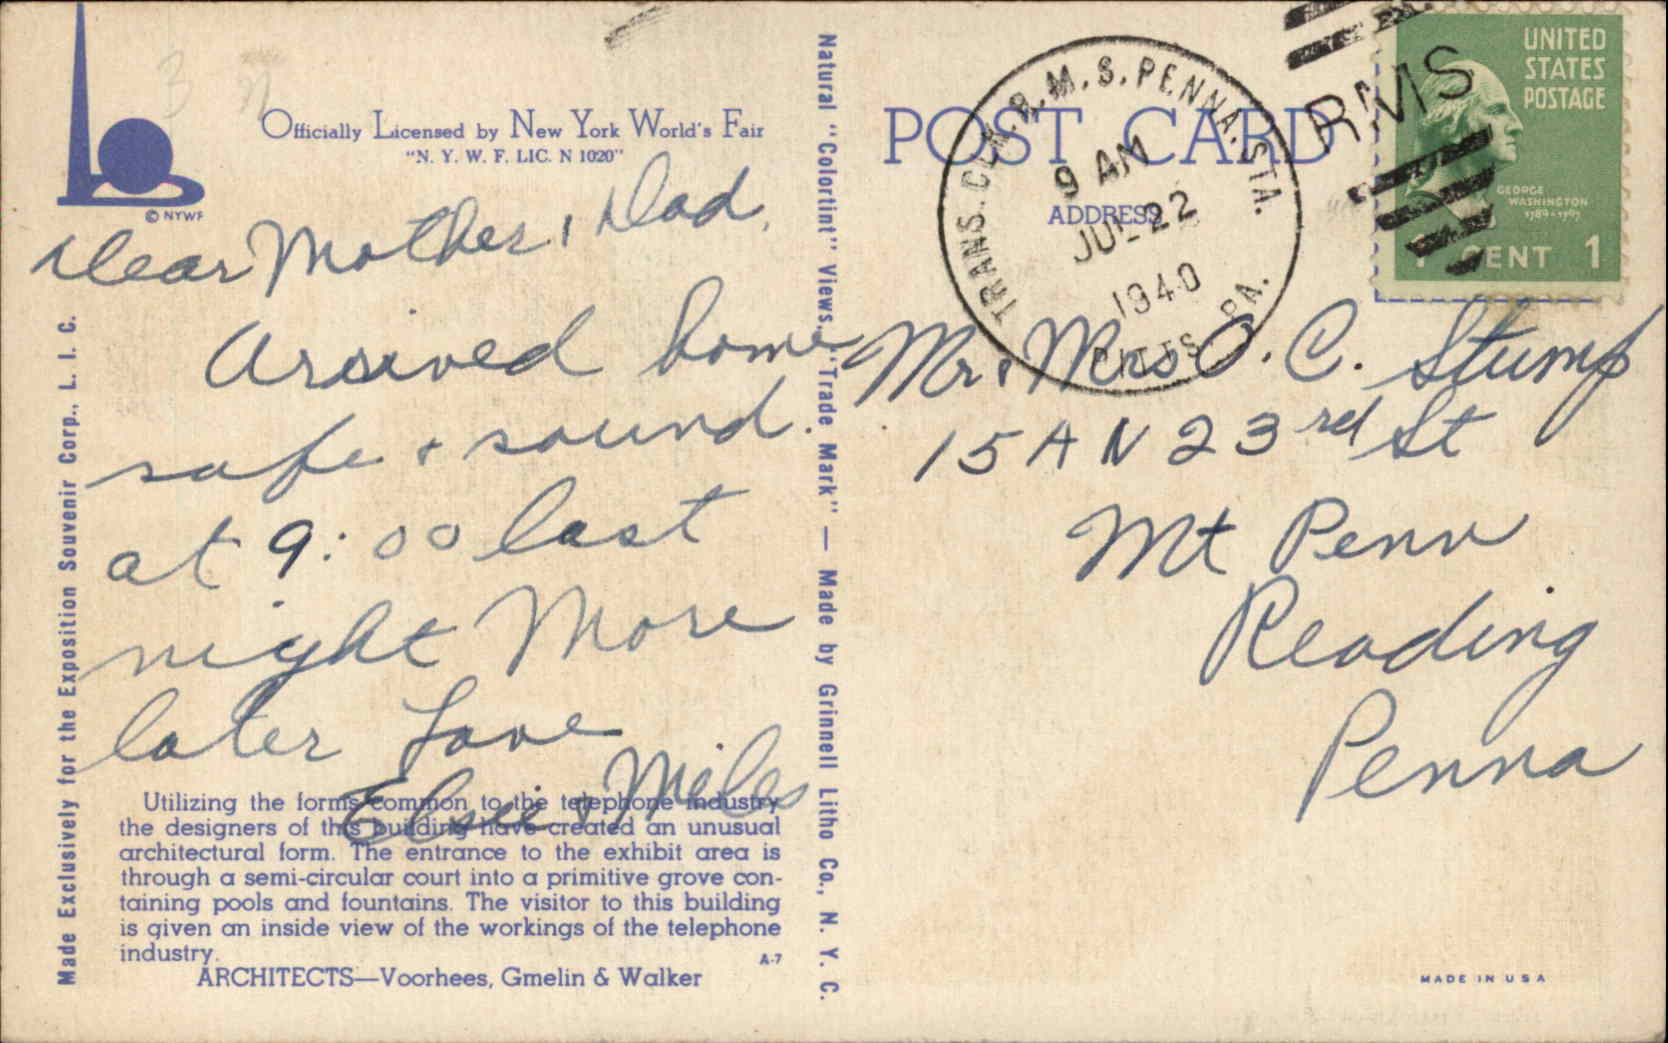 © NYWF
Officially Licensed by New York World's Fair
"N. Y. W. F. LIC. N 1020"
Dear Mother & Dad,
Arrived home
safe & sound.
at 9:00 last
night More
later Love
Elsie & Miles
Utilizing the forms common to the telephone industry
the designers of this building have created an unusual
architectural form. The entrance to the exhibit area is
through a semi-circular court into a primitive grove con-
taining pools and fountains. The visitor to this building
is given an inside view of the workings of the telephone
industry.
A-7
ARCHITECTS—Voorhees, Gmelin & Walker
Made Exclusively for the Exposition Souvenir Corp., L. I. C.
Natural "Colortint" Views, "Trade Mark" — Made by Grinnell Litho Co., N. Y. C.
POST CARD
ADDRESS
TRANS. CLK. R.M.S. PENNA. STA.
9 AM
JUL 22
1940
PITTS. PA.
RMS
UNITED
STATES
POSTAGE
GEORGE
WASHINGTON
1789-1797
1 CENT 1
Mr & Mrs O. C. Stump
15 A N 23rd St
Mt Penn
Reading
Penna
MADE IN USA